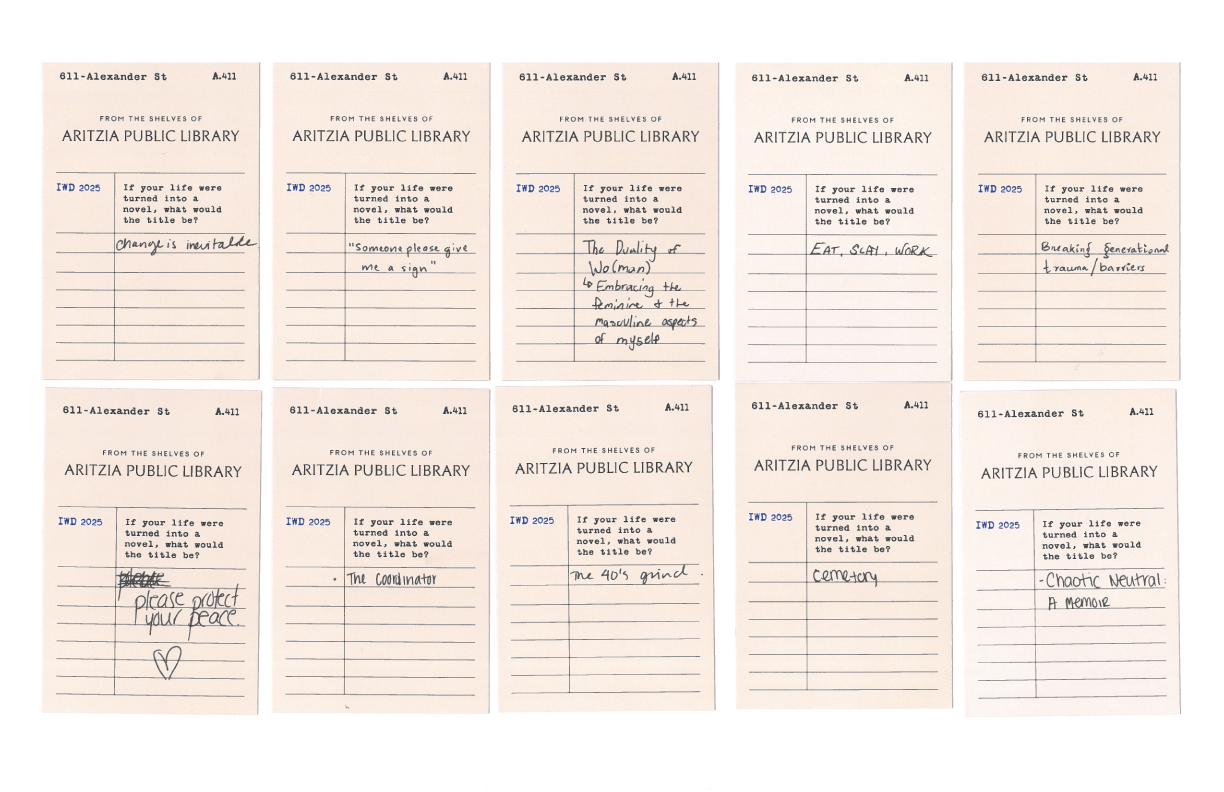 611-Alexander St A.411
FROM THE SHELVES OF
ARITZIA PUBLIC LIBRARY
IWD 2025
If your life were
turned into a
novel, what would
the title be?
change is inevitable
611-Alexander St A.411
FROM THE SHELVES OF
ARITZIA PUBLIC LIBRARY
IWD 2025
If your life were
turned into a
novel, what would
the title be?
"Someone please give
me a sign"
611-Alexander St A.411
FROM THE SHELVES OF
ARITZIA PUBLIC LIBRARY
IWD 2025
If your life were
turned into a
novel, what would
the title be?
The Duality of
Wo(man)
↳ Embracing the
feminine & the
masculine aspects
of myself
611-Alexander St A.411
FROM THE SHELVES OF
ARITZIA PUBLIC LIBRARY
IWD 2025
If your life were
turned into a
novel, what would
the title be?
EAT, SLAY, WORK
611-Alexander St A.411
FROM THE SHELVES OF
ARITZIA PUBLIC LIBRARY
IWD 2025
If your life were
turned into a
novel, what would
the title be?
Breaking generational
trauma/barriers
611-Alexander St A.411
FROM THE SHELVES OF
ARITZIA PUBLIC LIBRARY
IWD 2025
If your life were
turned into a
novel, what would
the title be?
please protect
your peace.
611-Alexander St A.411
FROM THE SHELVES OF
ARITZIA PUBLIC LIBRARY
IWD 2025
If your life were
turned into a
novel, what would
the title be?
• The Coordinator
611-Alexander St A.411
FROM THE SHELVES OF
ARITZIA PUBLIC LIBRARY
IWD 2025
If your life were
turned into a
novel, what would
the title be?
The 40's grind.
611-Alexander St A.411
FROM THE SHELVES OF
ARITZIA PUBLIC LIBRARY
IWD 2025
If your life were
turned into a
novel, what would
the title be?
611-Alexander St A.411
FROM THE SHELVES OF
ARITZIA PUBLIC LIBRARY
IWD 2025
If your life were
turned into a
novel, what would
the title be?
- Chaotic Neutral:
A Memoir